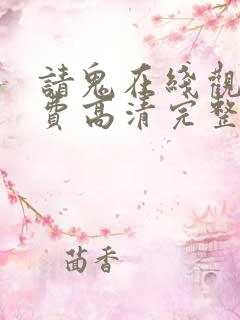 請鬼在綫觀
費高清完整
茴香